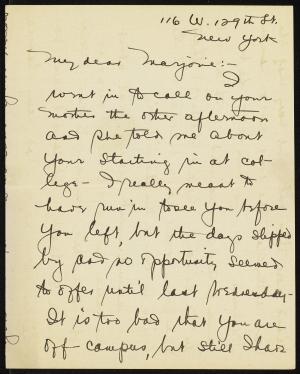 116 W. 129th St.
New York
My dear Marjorie:-
I
went in to call on your
mother the other afternoon
and she told me about
your starting in at col-
lege - I really meant to
have run in to see you before
you left, but the days slipped
by and no opportunity seemed
to offer until last Wednesday-
It is too bad that you are
off campus, but still I have